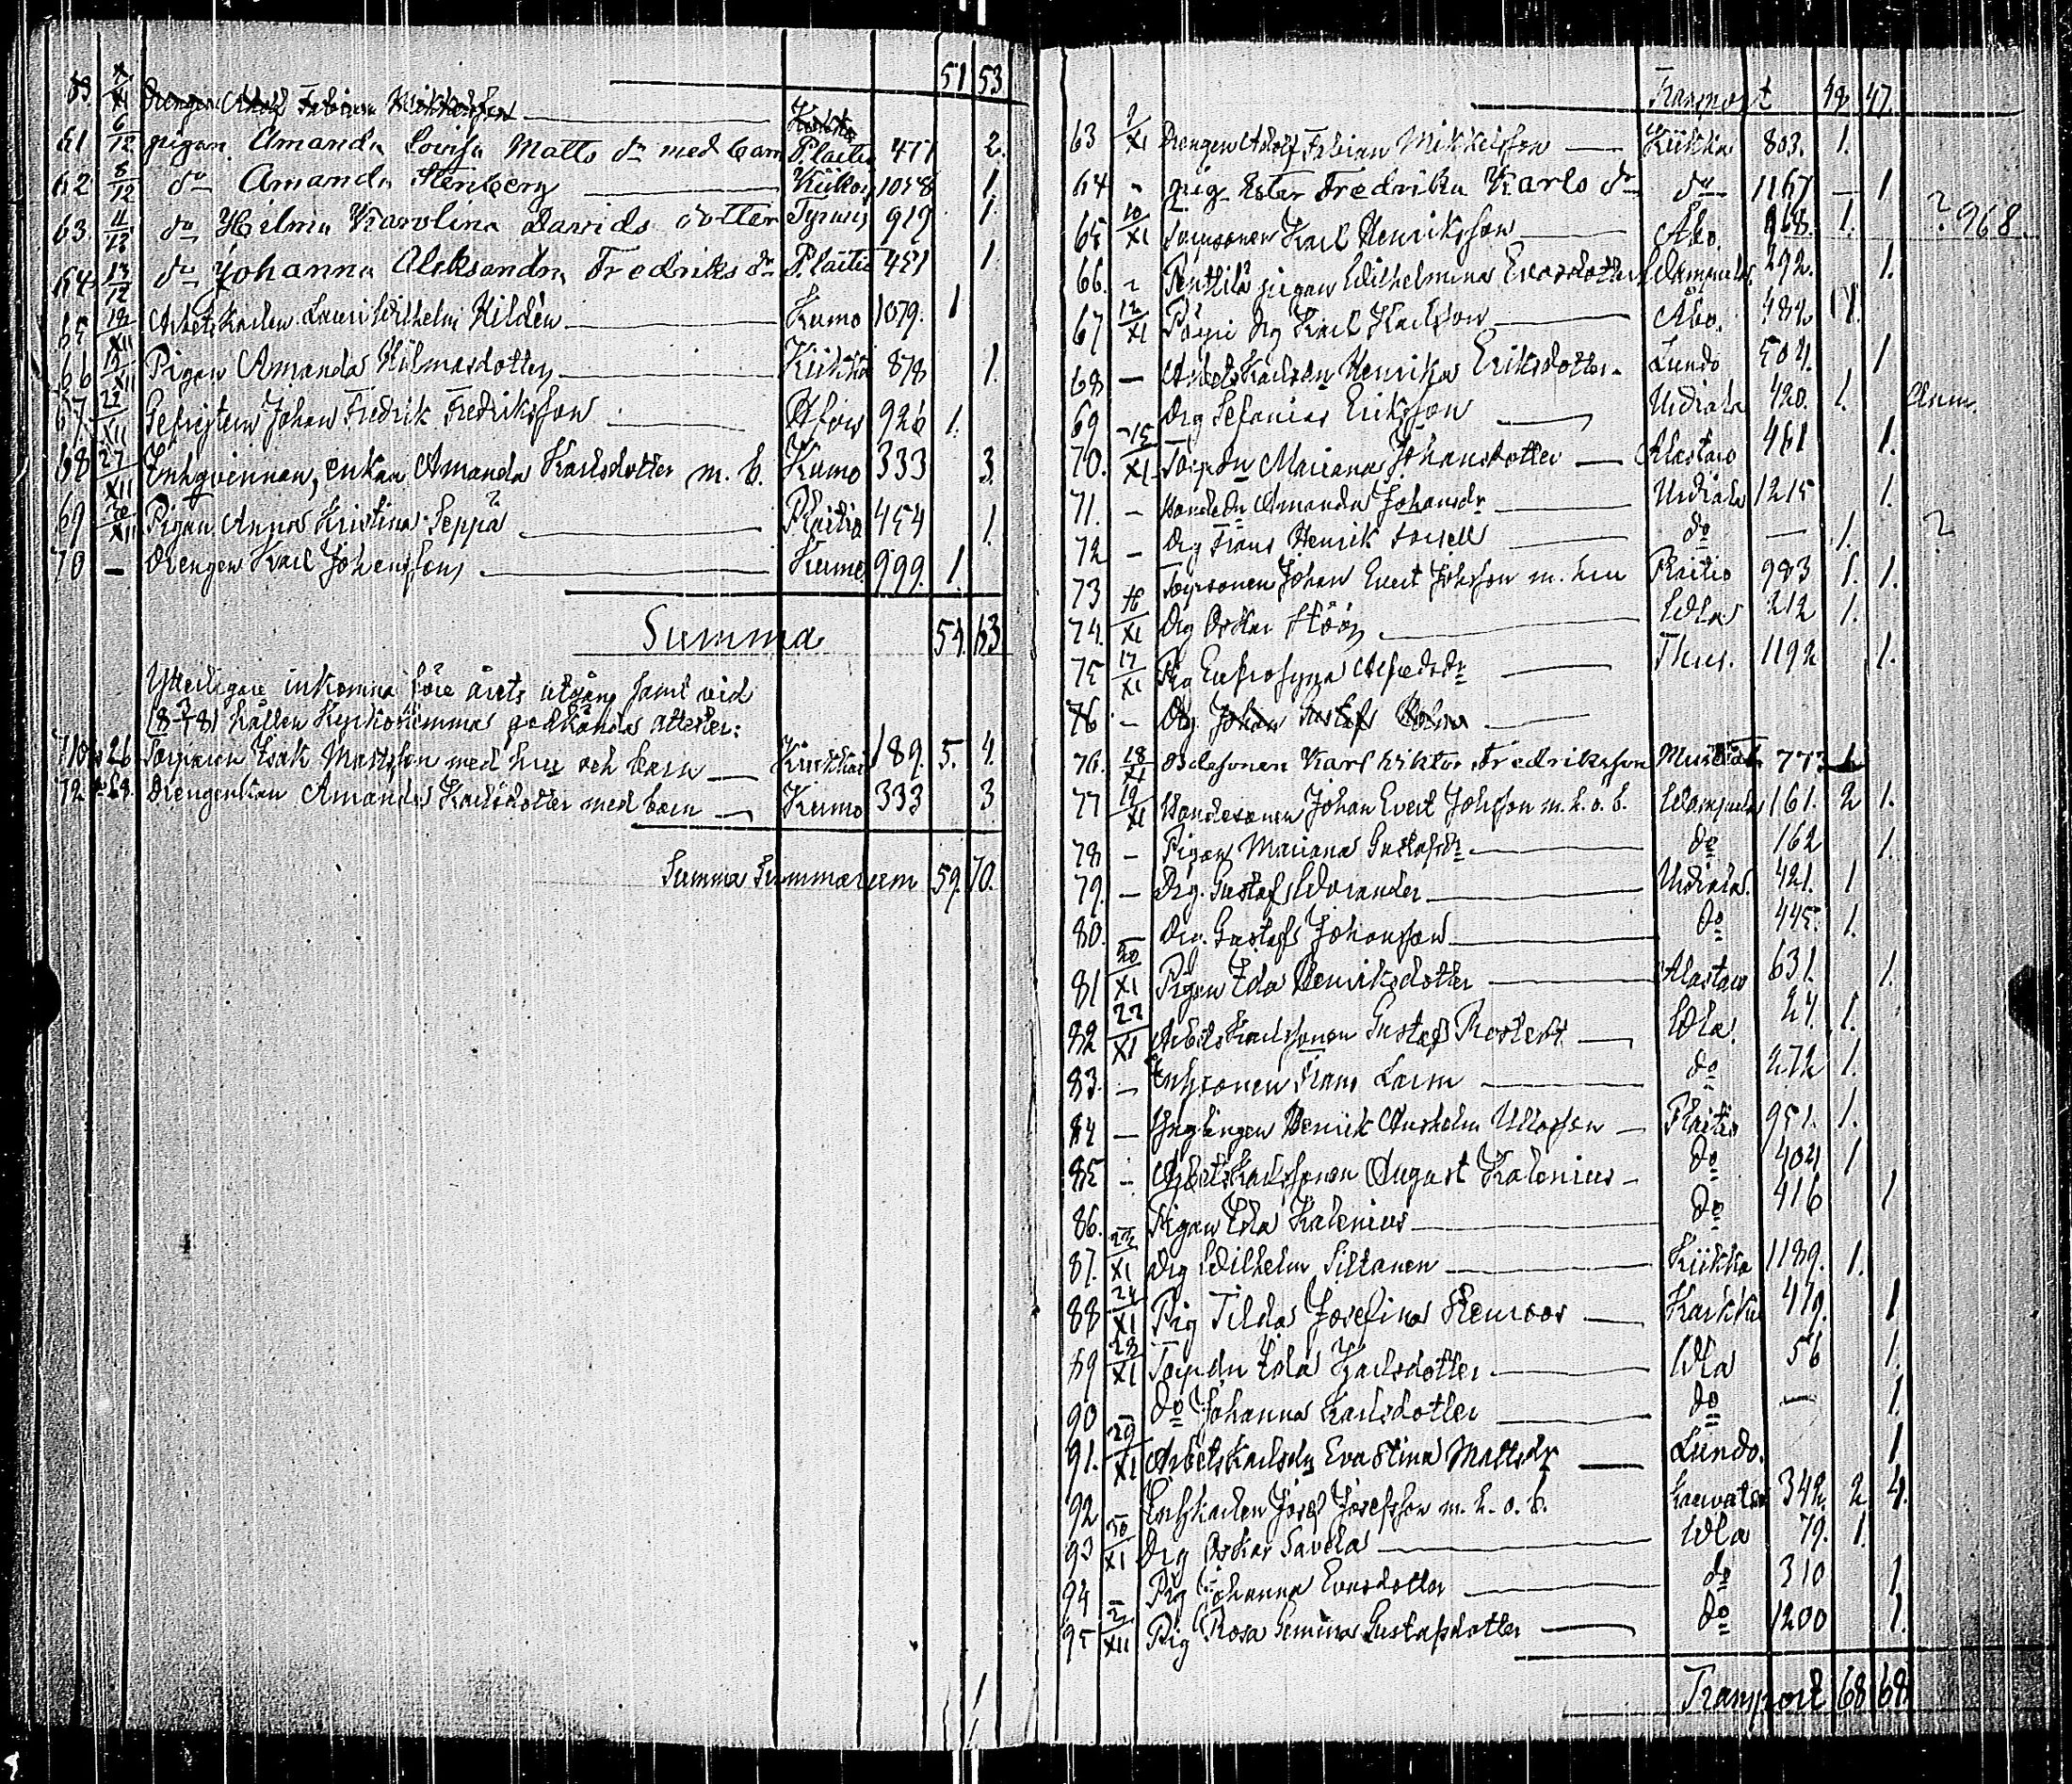 51 53
61 6/12 pigan Amanda Lovisa Matts dr med barn P. laitio 477 2.
62 8/12 do Amanda Stenberg Kiikois 1058 1.
63. 11/12 do Hilma Karolina Davids dotter Tyrvis 919 1.
64 13/12 do Johanna Aleksandra Fredriks dr P. laitio 451 1
65 19/XII Arbetskarlen Lauri Wilhelm Hildén Kumo 1079. 1
66 19/XII Pigan Amanda Hilmasdotter Kiikka 878 1.
67. 22/XII Gefrejtern Johan Fredrik Fredriksson 926 1.
68 27/XII Inhqvinnan, enkan Amanda Karlsdotter m. b. Kumo 333 3.
69 30/XII Pigan Anna Kristina Seppä Plaitio 454 1.
70 – Drengen Karl Johansson Kumo 999. 1.
Summa 54. 63
Ytterligare inkomna före årets utgång samt vid
hållen kyrkostämma godkända attester:
26 Torparen Isak Mattsson med hru och barn Kiikka 189. 5. 4.
72 Drengenkan Amanda Karlsdotter med barn Kumo 333 3
Summa Summarum 59. 70.
Transport 49 47.
63 9/XI Drengen Adolf Fabian Mikkelsson Kiikka 803. 1.
64 - pig. Ester Fredrika Karls dr do 1167 – 1
65 10/XI Torpsonen Karl Henriksson Åbo. 968. 1. ? 968.
66. - Penttilä pigan Wilhelmina Evasdotter Wampula. 292. 1.
67 12/XI drg Karl Karlsson Åbo. 482 1.
68 — Arbetskarlsdn Henrika Eriksdotter Lundo 504. 1
69 Drg Sefanias Eriksson Urdiala 420. 1. Anm.
70. 15/XI Torpdn Mariana Johansdotter Alastaro 461 1.
71. - Amanda Johansdr Urdiala 1215 1.
72 - Drg Frans Henrik Forsell do — 1. ?
73 Torpsonen Johan Evert Johsson m. hru Plaitio 983 1. 1.
74. 16/XI Drg Oskar Höök Wla 212 1.
75 17/XI Pig Eufrosyna Alfredsdr Thus. 1192 1.
76 - Drg Johan Gustaf
76. 18/XI Karl Viktor Fredriksson 773 1
77 19/XI Bondesonen Johan Evert Johsson m. h. o. b. Wampula 161. 2 1.
78 - Pigan Mariana Gustafsdr do 162 1.
79. - Drg. Gustaf Worander Urdiala. 421. 1
80. - Drg. Gustaf Johansson do 445. 1.
81 20/XI Pigan Ida Henriksdotter Alastaro 631. 1.
82 22/XI Arbetskarlssonen Gustaf Rostedt Wla. 24. 1.
83. - Inhysonen Frans Larm do 272 1.
84 — Ynglingen Henrik Anshelm Plaitio 951. 1.
85 - Arbetskarlssonen August Kalenius do 404 1
86. Pigan Ida Kalenius do 416 1
87. 23/XI Drg Wilhelm Siltanen Kiikka 1189. 1.
88 24/XI Pig Tilda Josefina Stenroos Karkku 479. 1
89 28/XI Torpdn Ida Karlsdotter Wla 56 1.
90 - do Johanna Karlsdotter do — 1.
91. 29/XI Arbetskarlsdn Eva Stina Mattsdr Lundo. 1
92 Inhyskarlen Josef Josefsson m. h. o. b. 342. 2 4.
93 30/XI Drg Oskar Savela Wla 79. 1.
94 - Pig Johanna Evasdotter do 310 1.
95 2/XII Pig Rosa Gemina Gustafsdotter do 1200 1.
Transport 68 68